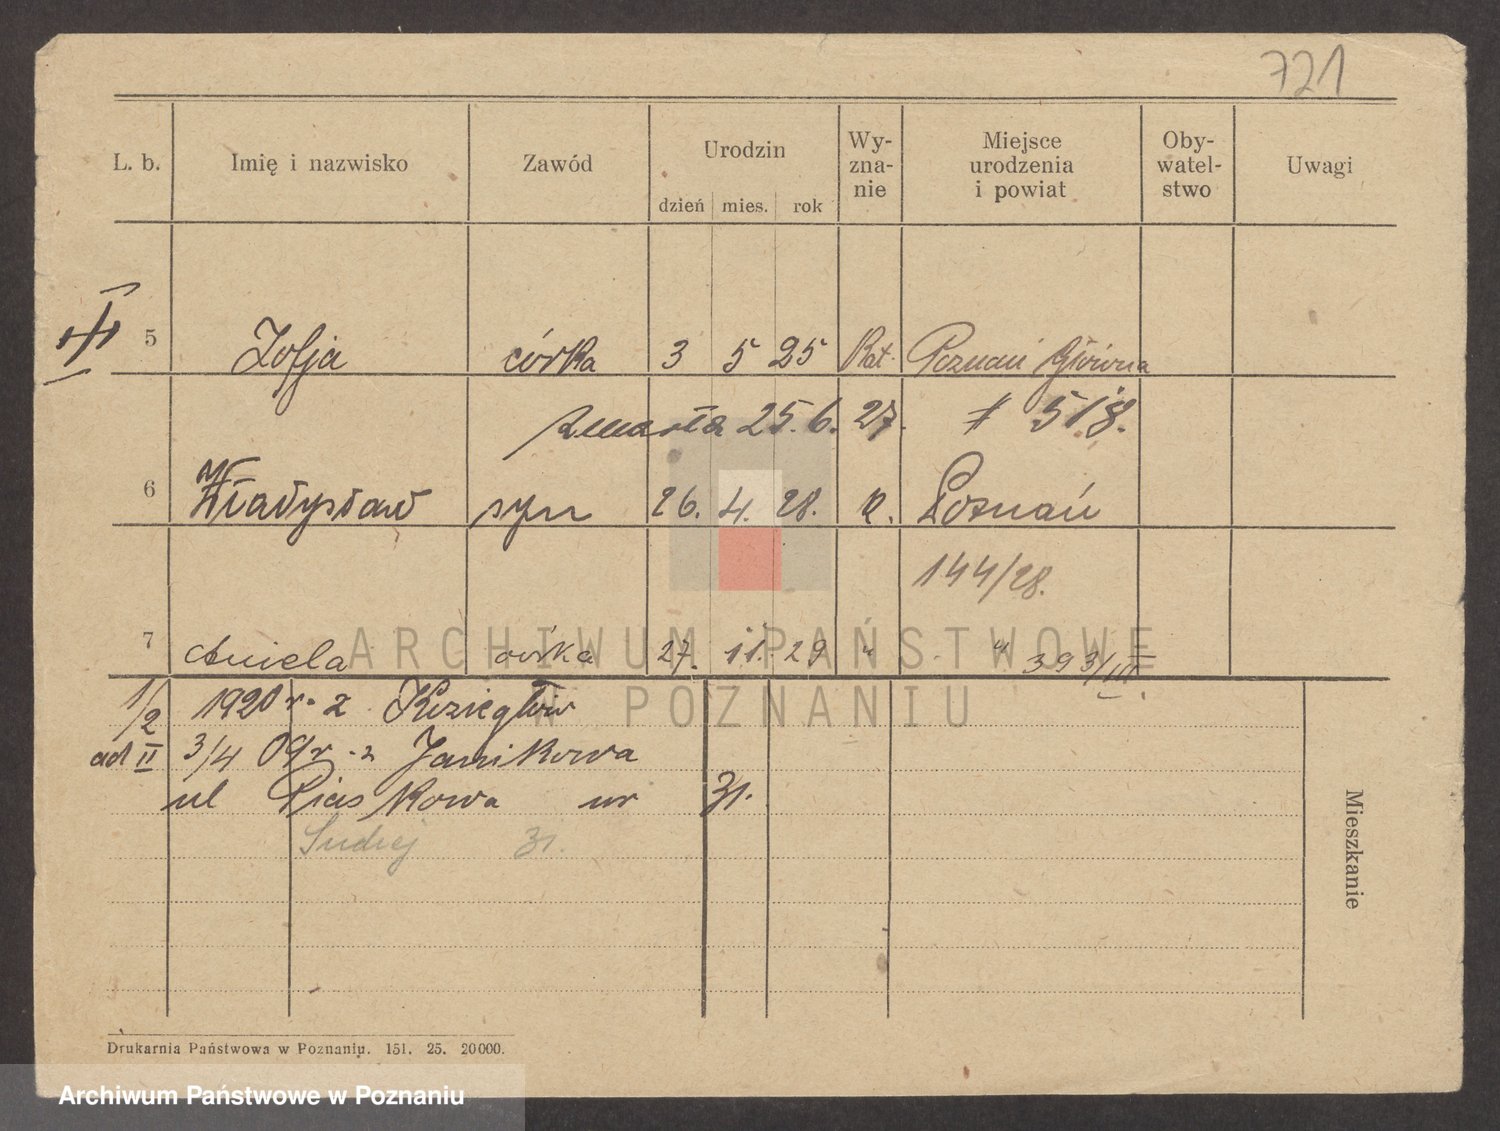 721
L. b. Imię i nazwisko Zawód Urodzin dzień mies. rok Wy-zna-nie Miejsce urodzenia i powiat Oby-watel-stwo Uwagi
5 Zofja córka 3 5 25 Kat. Poznań Główna
zmarła 25. 6. 27. # 518.
6 Władysław syn 26. 4. 28. K. Poznań
144/28.
7 Aniela córka 27. 11. 29 " " 393/III.
1/2 1920 r. z Koziegłów
ad II 3/4 09 r. z Janikowa
ul Piaskowa nr 31.
31.
Mieszkanie
Drukarnia Państwowa w Poznaniu. 151. 25. 20000.
ARCHIWUM PAŃSTWOWE
W POZNANIU
Archiwum Państwowe w Poznaniu